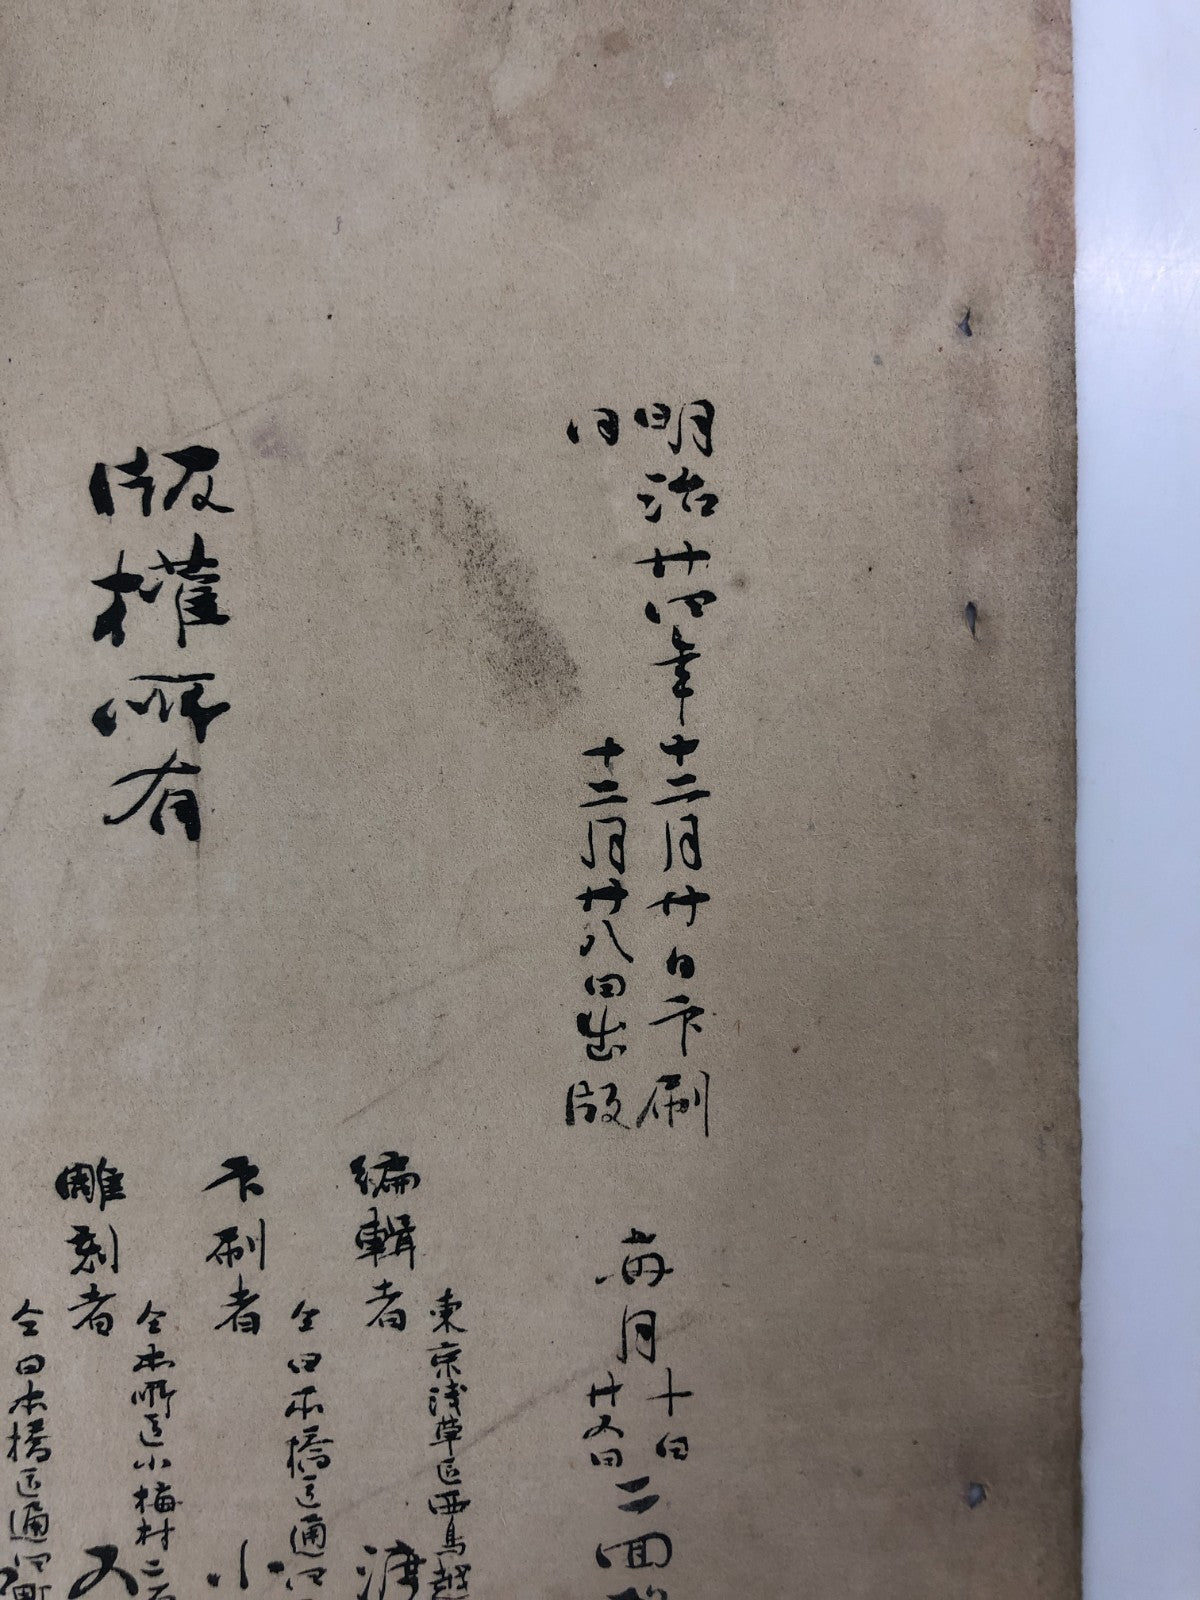 明治廿四年十二月廿日印刷
同 十二月廿八日出版
毎月十日
廿五日
二回
編輯者
東京浅草区西鳥越
渡
印刷者
仝日本橋区通四
小
雕刻者
仝本所区小梅村二百
又
仝日本橋区通四町
版權所有